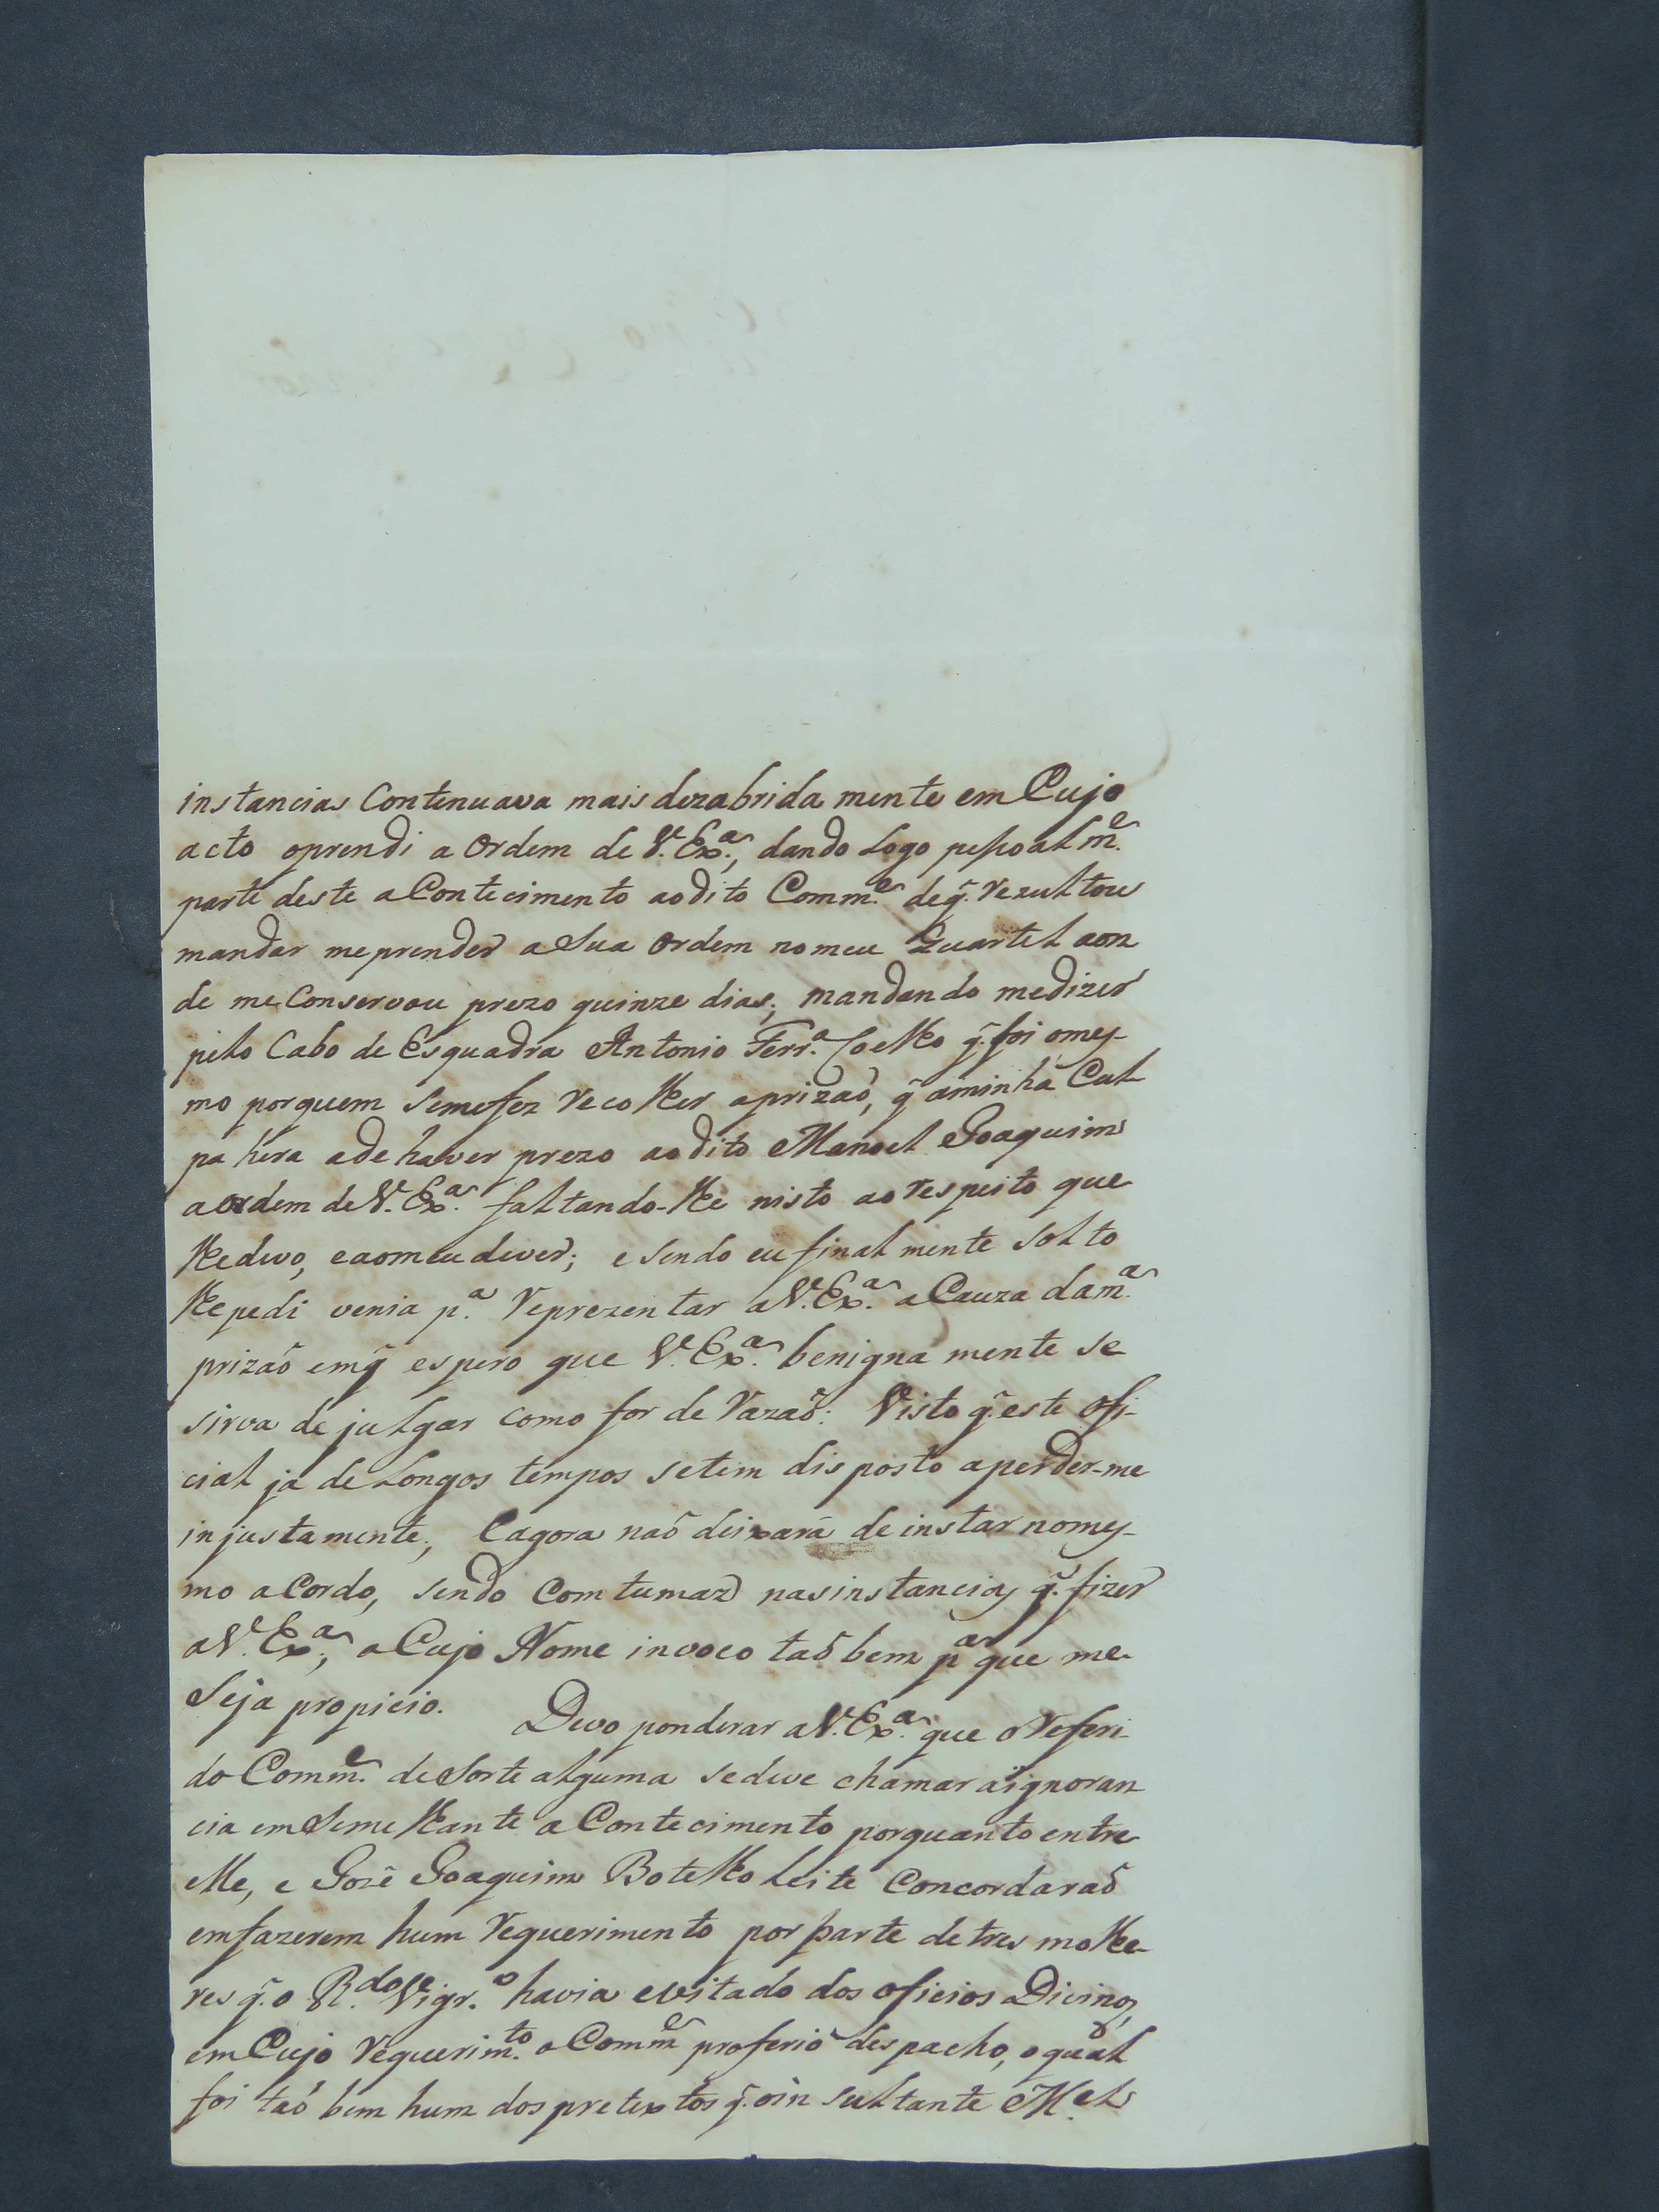 instancias Continuava mais dezabrida mente em Cujo
acto oprendi a Ordem de V. Exª., dando Logo pessoalm.e
parte deste aContecimento aodito Comm.e deq̃. rezultou
mandar meprender a Sua Ordem nomeu Quartel aon
de me Conservou prezo quinze dias; mandando medizer
pelo Cabo de Esquadra Antonio Ferr.ª Coelho q̃. foi omes-
mo porquem semefez recolher aprizaõ, q̃ aminhã Cul
pa hera ade haver prezo aodito Manoel Joaquim
aordem de V. Exª. faltando-lhe nisto ao respeito que
lhedevo, eaomeu dever; e sendo eu finalmente solto
lhepedi venia p.ª reprezentar aV. Exª. a Cauza dam.ª
prizaõ emq̃ espero que V. Exª. benigna mente se
sirva de julgar como for de razaõ: Visto q̃. este Ofi-
cial ja de Longos tempos setem disposto aperder-me
injustamente; Eagora naõ deixará de instar nomes-
mo aCordo, sendo Comtumaz nasinstancias q̃. fizer
aV. Exª., a Cujo Nome invoco taõ bem pª que me
Seja propicio. Devo ponderar aV. Exª. que oreferi-
do Comm.e deSorte alguma sedeve chamar aignoran
cia emSemelhante aContecimento porquanto entre
elle, e Jozê Joaquim Botelho Leite Concordaraõ
emfazerem hum requerimento por parte de tres molhe-
res q̃. o R.do Vigr.º havia evitado dos oficios Divinos,
emCujo requerim.to o Comm.e proferio despacho, oqual
foi taõ bem hum dospretextos q̃. oin sultante M.el